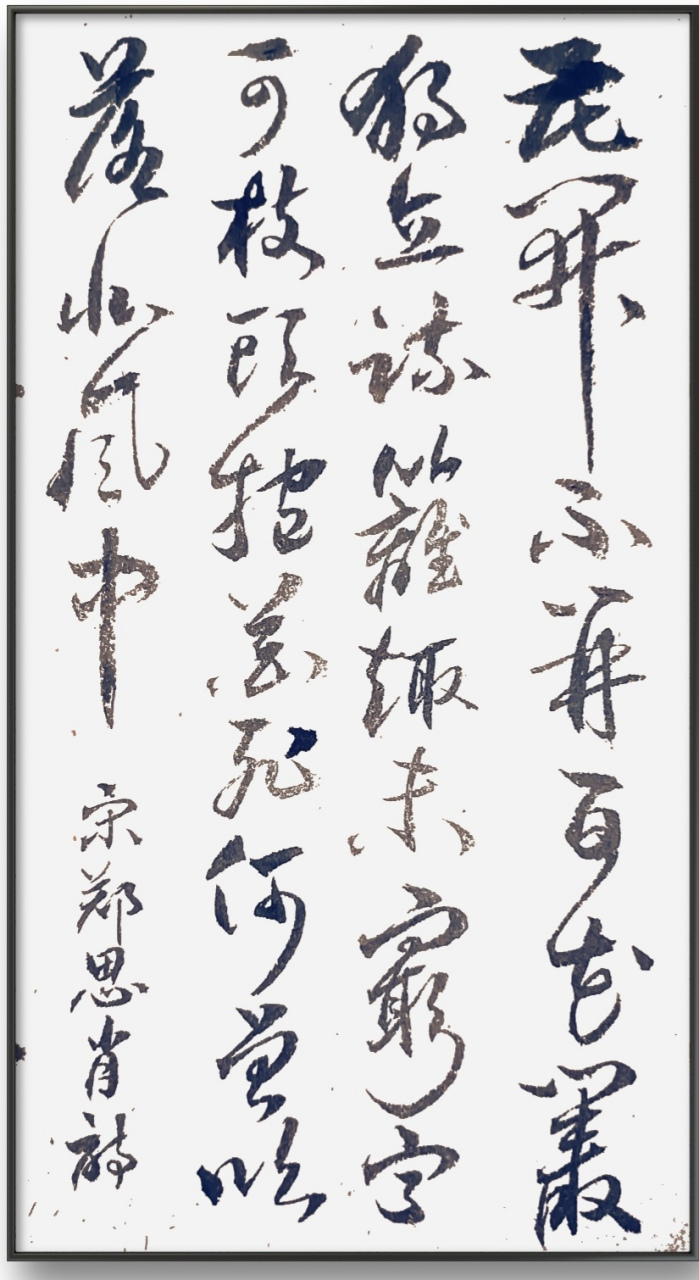 花開不并百花叢
獨立疏籬趣未窮寧
可枝頭抱香死何曾吹
落北風中
宋鄭思肖詩